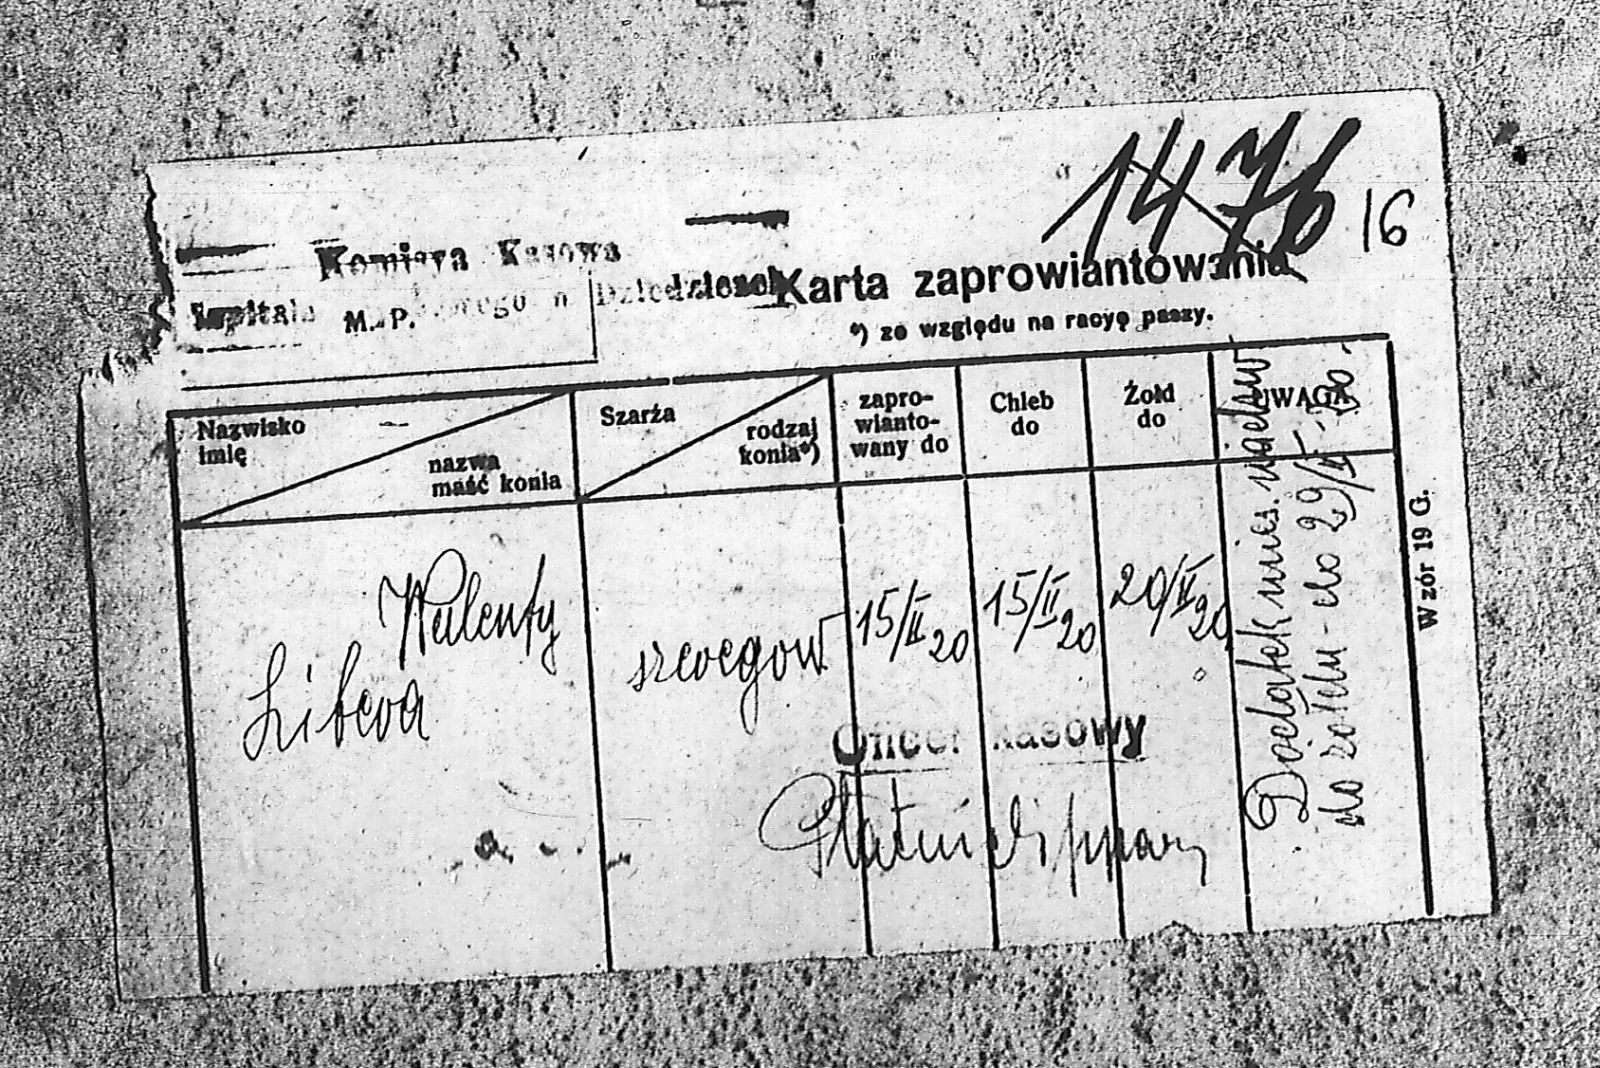 1476
16
Komisya Kasowa
Szpitala w Dziedzicach
M. P.
Karta zaprowiantowania
*) ze względu na racyę paszy.
Nazwisko
imię
nazwa
maść konia
Szarża
rodzaj
konia*)
zapro-
wianto-
wany do
Chleb
do
Żołd
do
UWAGA
Walenty
Libera
szeregow
15/II 20
15/II 20
20/II 20
Dodatek mies.
do żołdu - do 29/II. 20.
Oficer kasowy
Wzór 19 G.